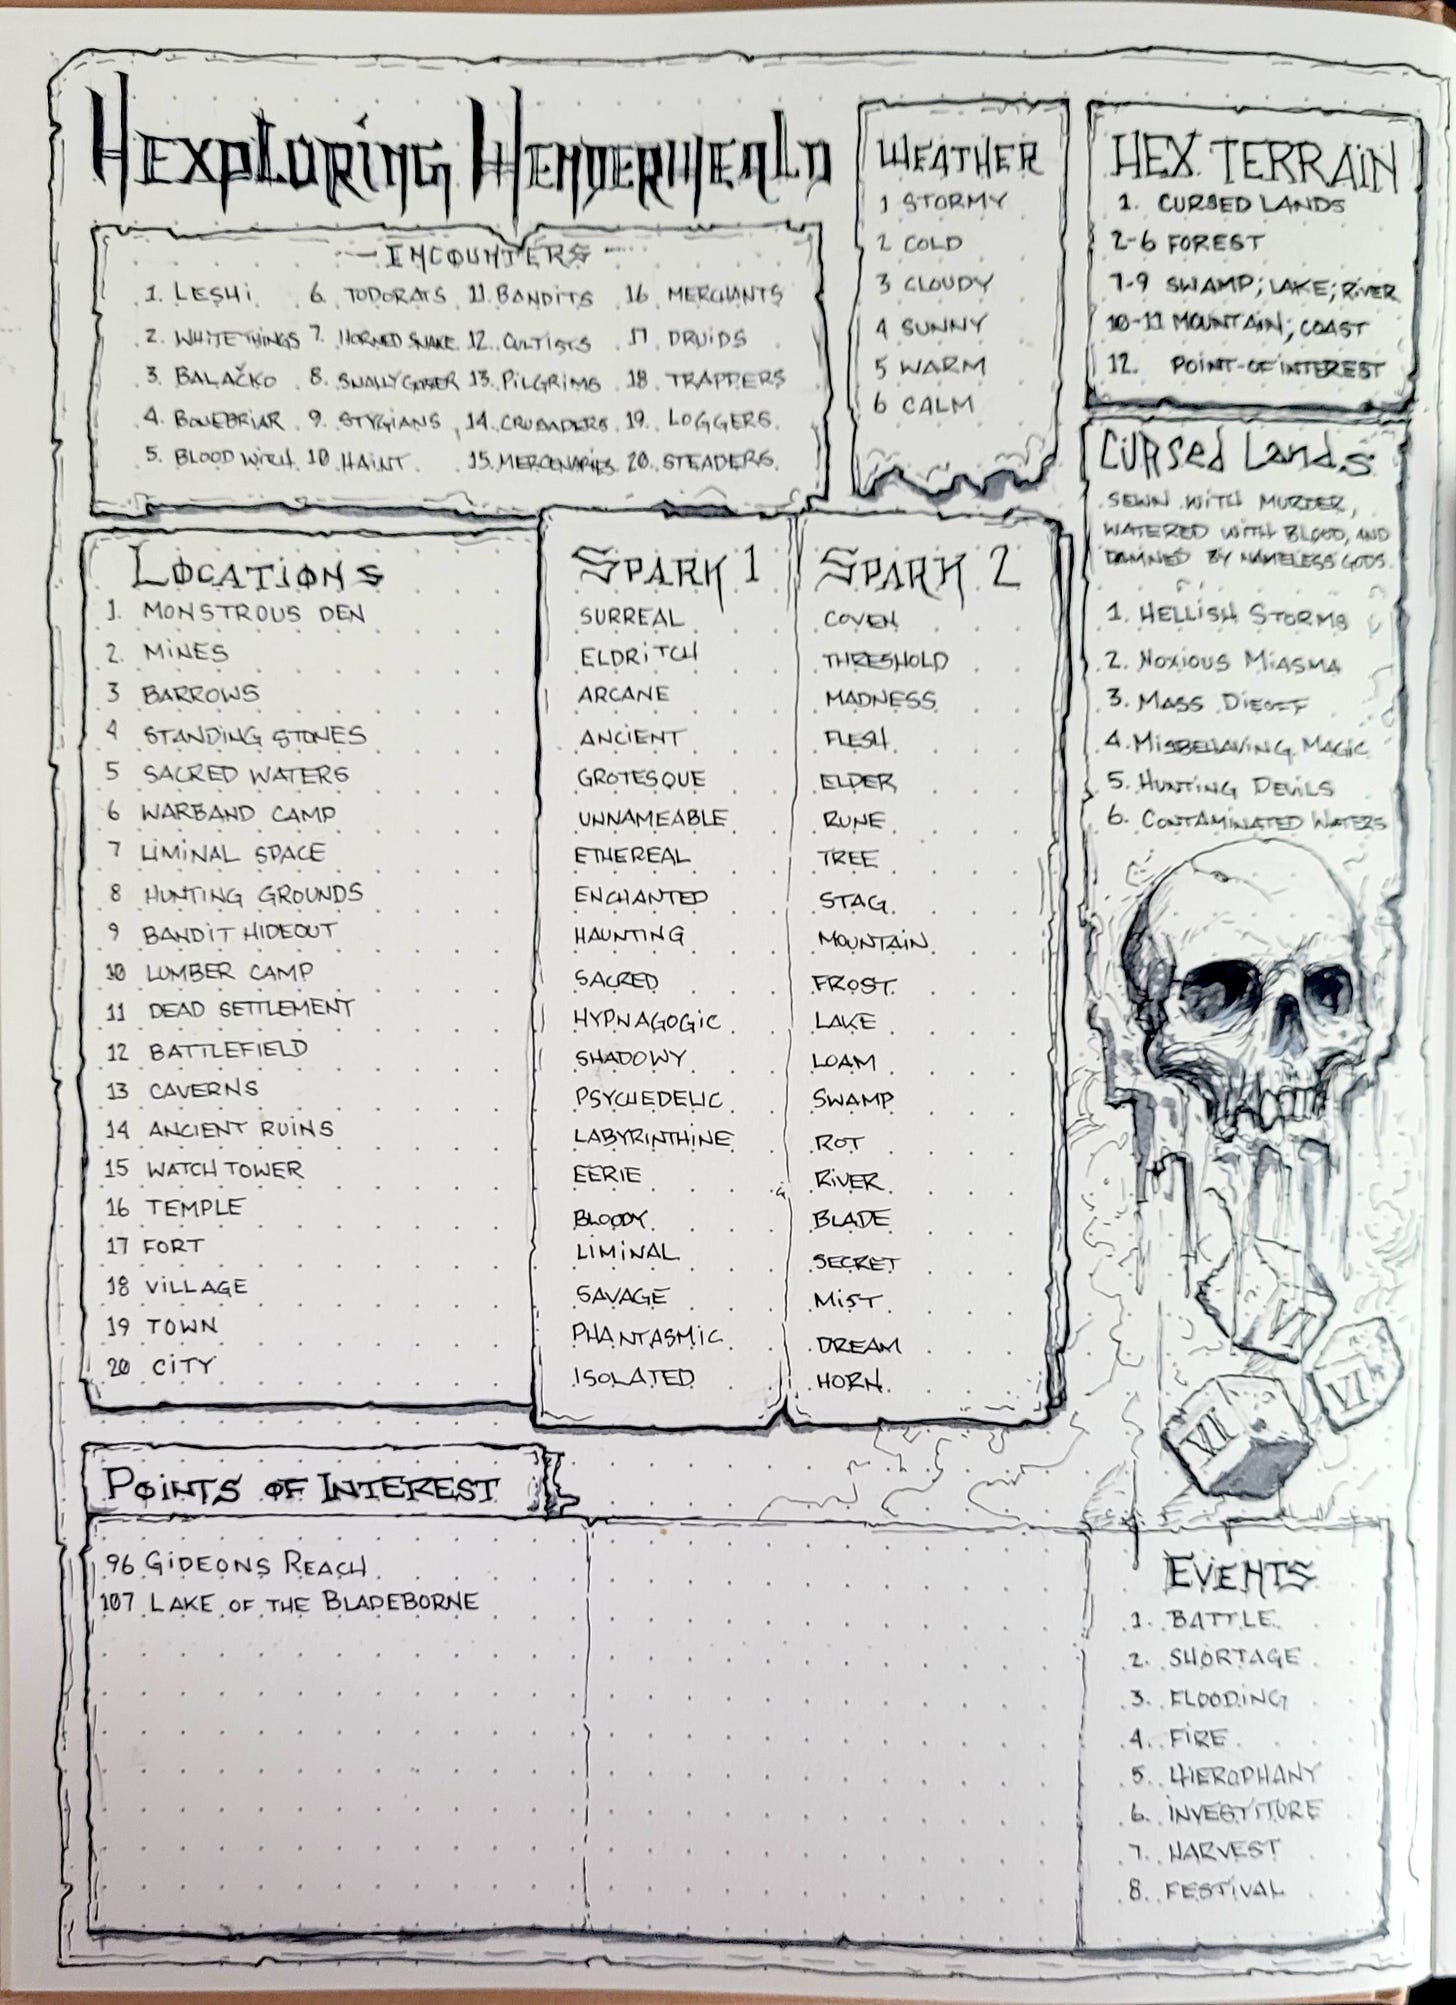 Hexploring Henderweald
ENCOUNTERS
1. LESHI
2. WHITE THINGS
3. BALAČKO
4. BONEBRIAR
5. BLOOD WITCH
6. TODORATS
7. HORNED SNAKE
8. SNALLYGASER
9. STYGIANS
10 HAINT
11. BANDITS
12. CULTISTS
13. PILGRIMS
14. CRUSADERS
15. MERCENARIES
16 MERCHANTS
17. DRUIDS
18. TRAPPERS
19. LOGGERS
20. STEADERS
WEATHER
1 STORMY
2 COLD
3 CLOUDY
4 SUNNY
5 WARM
6 CALM
HEX TERRAIN
1. CURSED LANDS
2-6 FOREST
7-9 SWAMP; LAKE; RIVER
10-11 MOUNTAIN; COAST
12. POINT-OF INTEREST
CURSED LANDS
SEWN WITH MURDER,
WATERED WITH BLOOD, AND
DAMNED BY NAMELESS GODS.
1. HELLISH STORMS
2. NOXIOUS MIASMA
3. MASS DIEOFF
4. MISBEHAVING MAGIC
5. HUNTING DEVILS
6. CONTAMINATED WATERS
LOCATIONS
1. MONSTROUS DEN
2. MINES
3 BARROWS
4 STANDING STONES
5 SACRED WATERS
6 WARBAND CAMP
7 LIMINAL SPACE
8 HUNTING GROUNDS
9 BANDIT HIDEOUT
10 LUMBER CAMP
11 DEAD SETTLEMENT
12 BATTLEFIELD
13 CAVERNS
14 ANCIENT RUINS
15 WATCH TOWER
16 TEMPLE
17 FORT
18 VILLAGE
19 TOWN
20 CITY
SPARK 1
SURREAL
ELDRITCH
ARCANE
ANCIENT
GROTESQUE
UNNAMEABLE
ETHEREAL
ENCHANTED
HAUNTING
SACRED
HYPNAGOGIC
SHADOWY
PSYCHEDELIC
LABYRINTHINE
EERIE
BLOODY
LIMINAL
SAVAGE
PHANTASMIC
ISOLATED
SPARK 2
COVEN
THRESHOLD
MADNESS
FLESH
ELDER
RUNE
TREE
STAG
MOUNTAIN
FROST
LAKE
LOAM
SWAMP
ROT
RIVER
BLADE
SECRET
MIST
DREAM
HORN
VI
VI
VI
POINTS OF INTEREST
96 GIDEONS REACH
107 LAKE OF THE BLADEBORNE
EVENTS
1. BATTLE
2. SHORTAGE
3. FLOODING
4. FIRE
5. HIEROPHANY
6. INVESTITURE
7. HARVEST
8. FESTIVAL